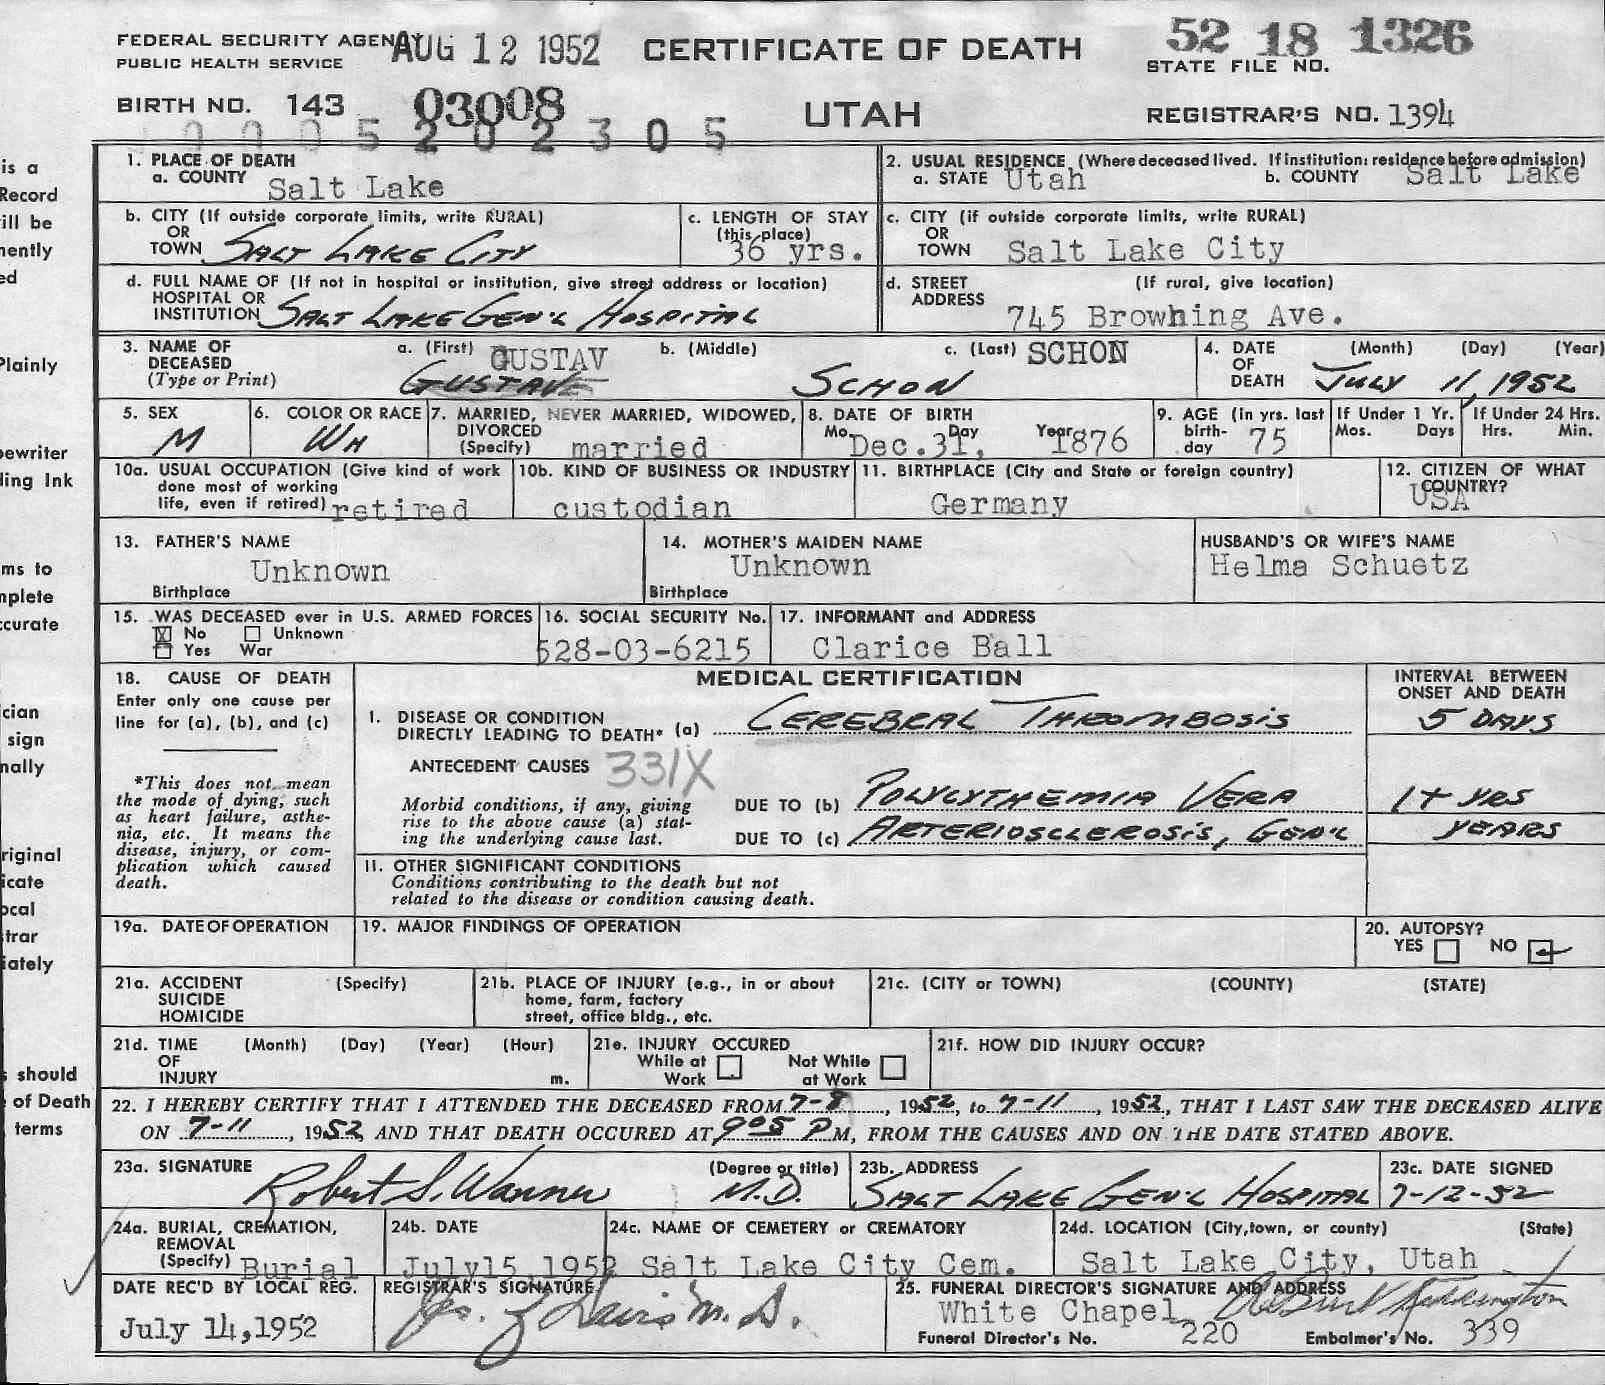 FEDERAL SECURITY AGENCY AUG 12 1952 CERTIFICATE OF DEATH 52 18 1326
PUBLIC HEALTH SERVICE STATE FILE NO.
BIRTH NO. 143 03008 UTAH REGISTRAR'S NO. 1394
0005202305
is a
Record
ill be
nently
ed
Plainly
pewriter
ling Ink
ms to
mplete
ccurate
ician
sign
nally
riginal
icate
ocal
trar
iately
s should
of Death
terms
1. PLACE OF DEATH
a. COUNTY Salt Lake
2. USUAL RESIDENCE (Where deceased lived. If institution: residence before admission)
a. STATE Utah b. COUNTY Salt Lake
b. CITY (If outside corporate limits, write RURAL)
OR
TOWN SALT LAKE CITY
c. LENGTH OF STAY
(this place)
36 yrs.
c. CITY (if outside corporate limits, write RURAL)
OR
TOWN Salt Lake City
d. FULL NAME OF (If not in hospital or institution, give street address or location)
HOSPITAL OR
INSTITUTION SALT LAKE GEN'L HOSPITAL
d. STREET (If rural, give location)
ADDRESS
745 Browning Ave.
3. NAME OF DECEASED
(Type or Print)
a. (First) GUSTAV b. (Middle) c. (Last) SCHON
GUSTAVE SCHON
4. DATE OF DEATH (Month) (Day) (Year)
JULY 11, 1952
5. SEX
M
6. COLOR OR RACE
WH
7. MARRIED, NEVER MARRIED, WIDOWED,
DIVORCED
(Specify) married
8. DATE OF BIRTH
Mo. Day Year
Dec. 31, 1876
9. AGE (in yrs. last
birth-
day 75
If Under 1 Yr.
Mos. Days
If Under 24 Hrs.
Hrs. Min.
10a. USUAL OCCUPATION (Give kind of work
done most of working
life, even if retired) retired
10b. KIND OF BUSINESS OR INDUSTRY
custodian
11. BIRTHPLACE (City and State or foreign country)
Germany
12. CITIZEN OF WHAT
COUNTRY?
USA
13. FATHER'S NAME
Unknown
Birthplace
14. MOTHER'S MAIDEN NAME
Unknown
Birthplace
HUSBAND'S OR WIFE'S NAME
Helma Schuetz
15. WAS DECEASED ever in U.S. ARMED FORCES
X No Unknown
Yes War
16. SOCIAL SECURITY No.
528-03-6215
17. INFORMANT and ADDRESS
Clarice Ball
18. CAUSE OF DEATH
Enter only one cause per
line for (a), (b), and (c)
*This does not mean
the mode of dying, such
as heart failure, asthe-
nia, etc. It means the
disease, injury, or com-
plication which caused
death.
MEDICAL CERTIFICATION
INTERVAL BETWEEN
ONSET AND DEATH
I. DISEASE OR CONDITION
DIRECTLY LEADING TO DEATH* (a) CEREBRAL THROMBOSIS 5 DAYS
ANTECEDENT CAUSES 331X
Morbid conditions, if any, giving
rise to the above cause (a) stat-
ing the underlying cause last.
DUE TO (b) POLYCYTHEMIA VERA 1+ YRS
DUE TO (c) ARTERIOSCLEROSIS, GEN'L YEARS
II. OTHER SIGNIFICANT CONDITIONS
Conditions contributing to the death but not
related to the disease or condition causing death.
19a. DATE OF OPERATION
19. MAJOR FINDINGS OF OPERATION
20. AUTOPSY?
YES NO
21a. ACCIDENT (Specify)
SUICIDE
HOMICIDE
21b. PLACE OF INJURY (e.g., in or about
home, farm, factory
street, office bldg., etc.
21c. (CITY or TOWN) (COUNTY) (STATE)
21d. TIME (Month) (Day) (Year) (Hour)
OF
INJURY m.
21e. INJURY OCCURED
While at Work Not While at Work
21f. HOW DID INJURY OCCUR?
22. I HEREBY CERTIFY THAT I ATTENDED THE DECEASED FROM 7-8, 1952, to 7-11, 1952, THAT I LAST SAW THE DECEASED ALIVE
ON 7-11, 1952 AND THAT DEATH OCCURED AT 9:05 P M, FROM THE CAUSES AND ON THE DATE STATED ABOVE.
23a. SIGNATURE (Degree or title)
Robert S. Wanner M.D.
23b. ADDRESS
SALT LAKE GEN'L HOSPITAL
23c. DATE SIGNED
7-12-52
24a. BURIAL, CREMATION,
REMOVAL
(Specify) Burial
24b. DATE
July 15, 1952
24c. NAME OF CEMETERY or CREMATORY
Salt Lake City Cem.
24d. LOCATION (City, town, or county) (State)
Salt Lake City, Utah
DATE REC'D BY LOCAL REG.
July 14, 1952
REGISTRAR'S SIGNATURE
Davis M.D.
25. FUNERAL DIRECTOR'S SIGNATURE AND ADDRESS
White Chapel
Funeral Director's No. 220 Embalmer's No. 339